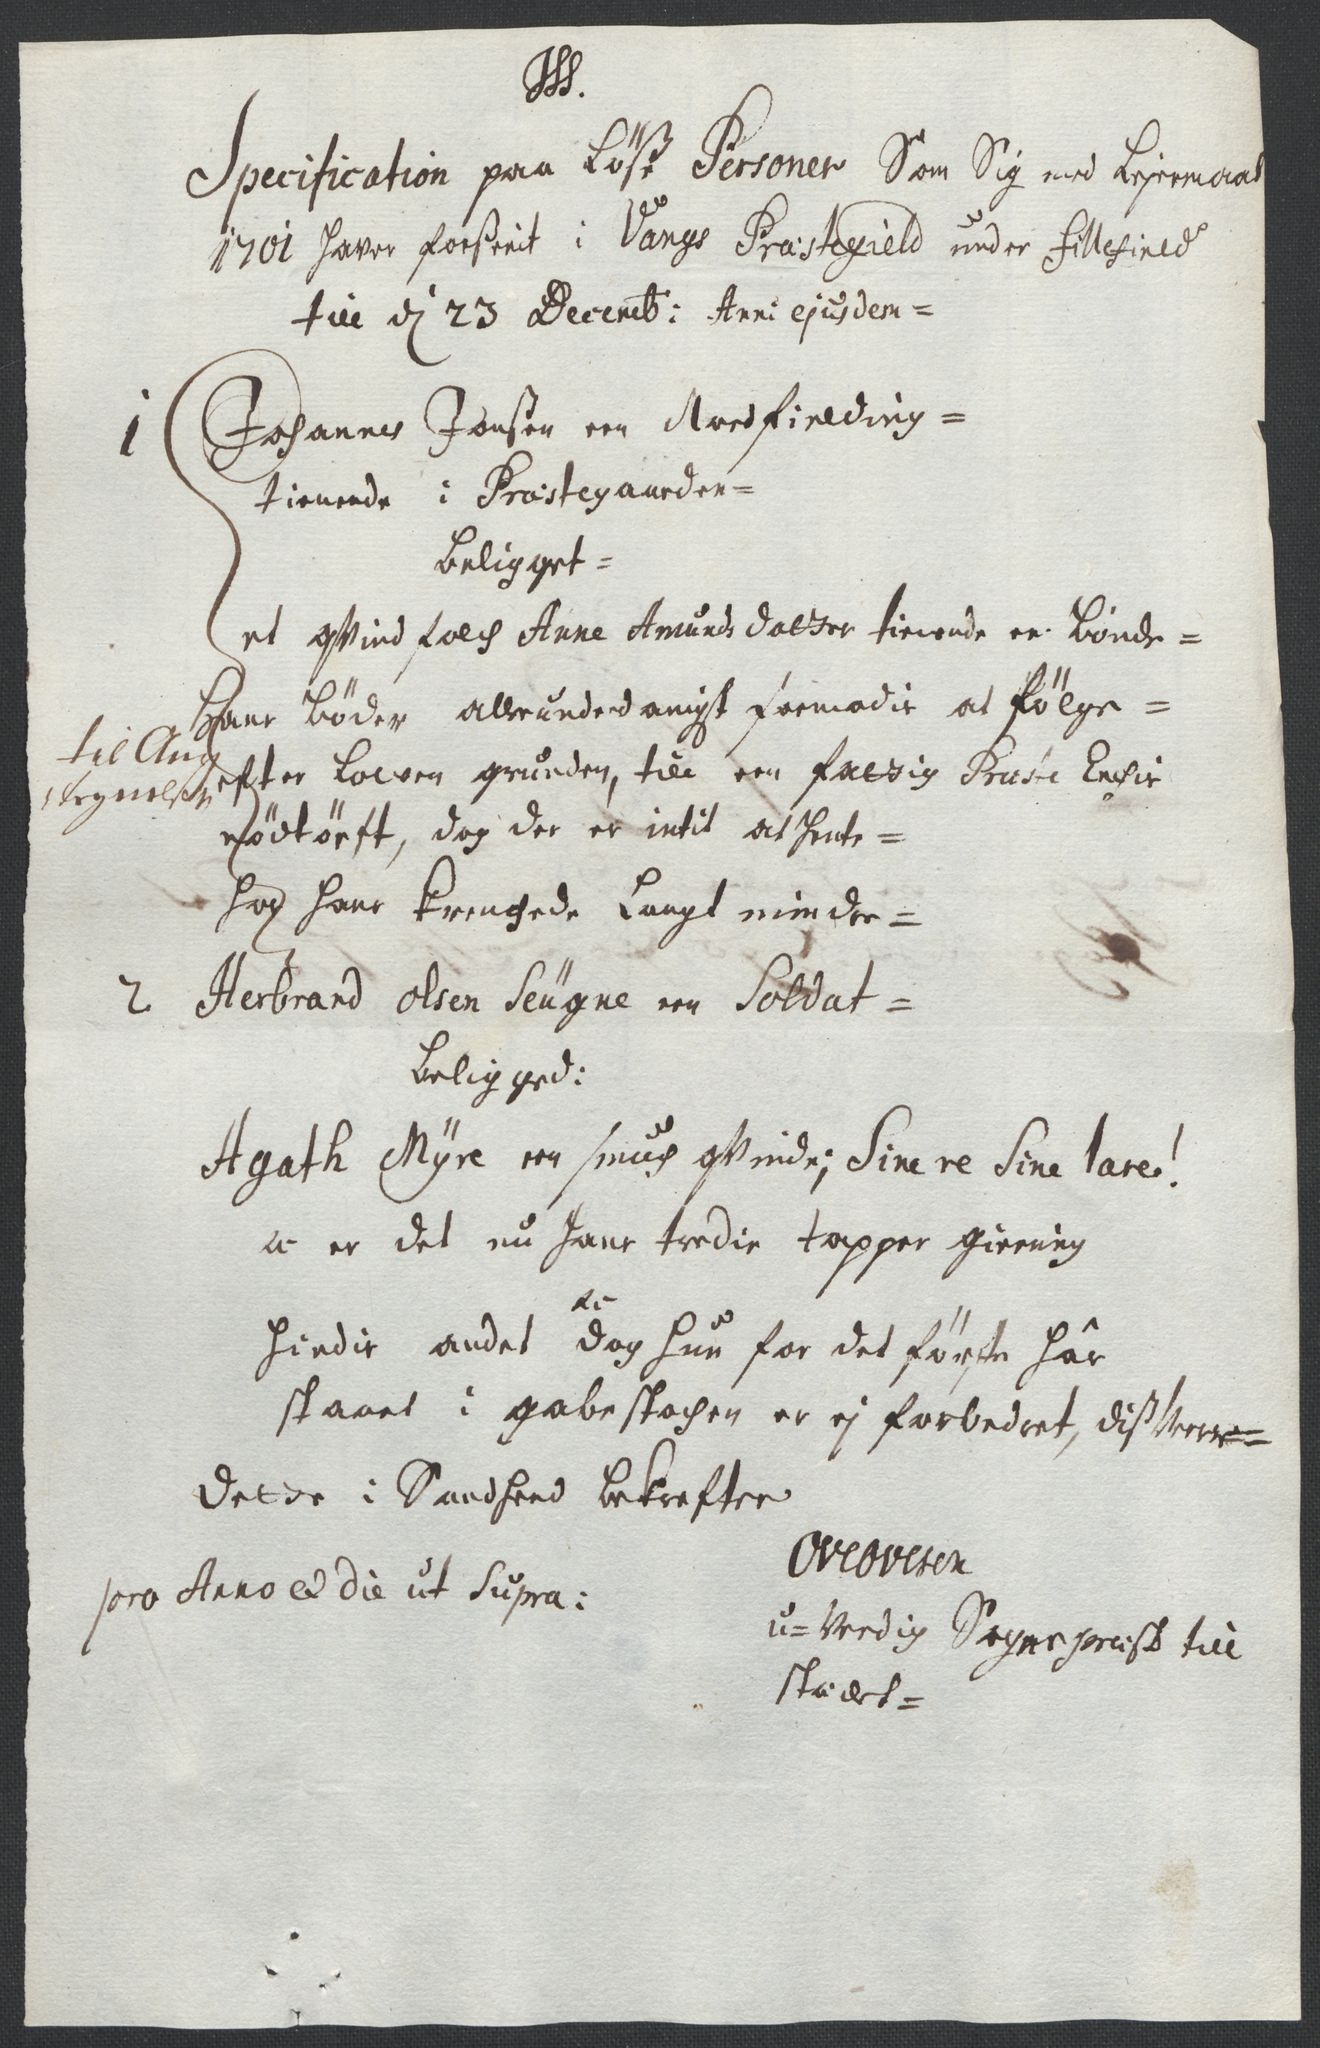 Specification paa Löse Personer Som Sig med Lejermaal
1701 haver forseeit i Vangs Præstegield under Fillefield
till dj 23 Decemb: Anni ejusdem =
1 Johannes Jonsen een Nordfielding =
tienende i Præstegaarden =
Beligget =
et qvindfolch Anne Amunds datter tienende en Bonde =
Hans Böder allerunderdanigst formodis at følge =
til Ang
efter Loven grunden, till een fattig Præste Enchis
nödtörft, dog der er intit at hente =
hos hans Krenchede Langt mindre =
2 Herbrand olsen Seügne een Soldat =
Beligged:
Agath Myre een smuch qvinde; Sine re Sine lare!
er det nu hans tredie tapper gierning
hindis andet dog hun for det förste hår
staaet i gabestochen er ej forbedret, diss verre =
Dette i Sandhed Bekrefter
Ove Ovesen
pro Anno & die ut Supra:
u=verdig Sogneprest till
stædet =